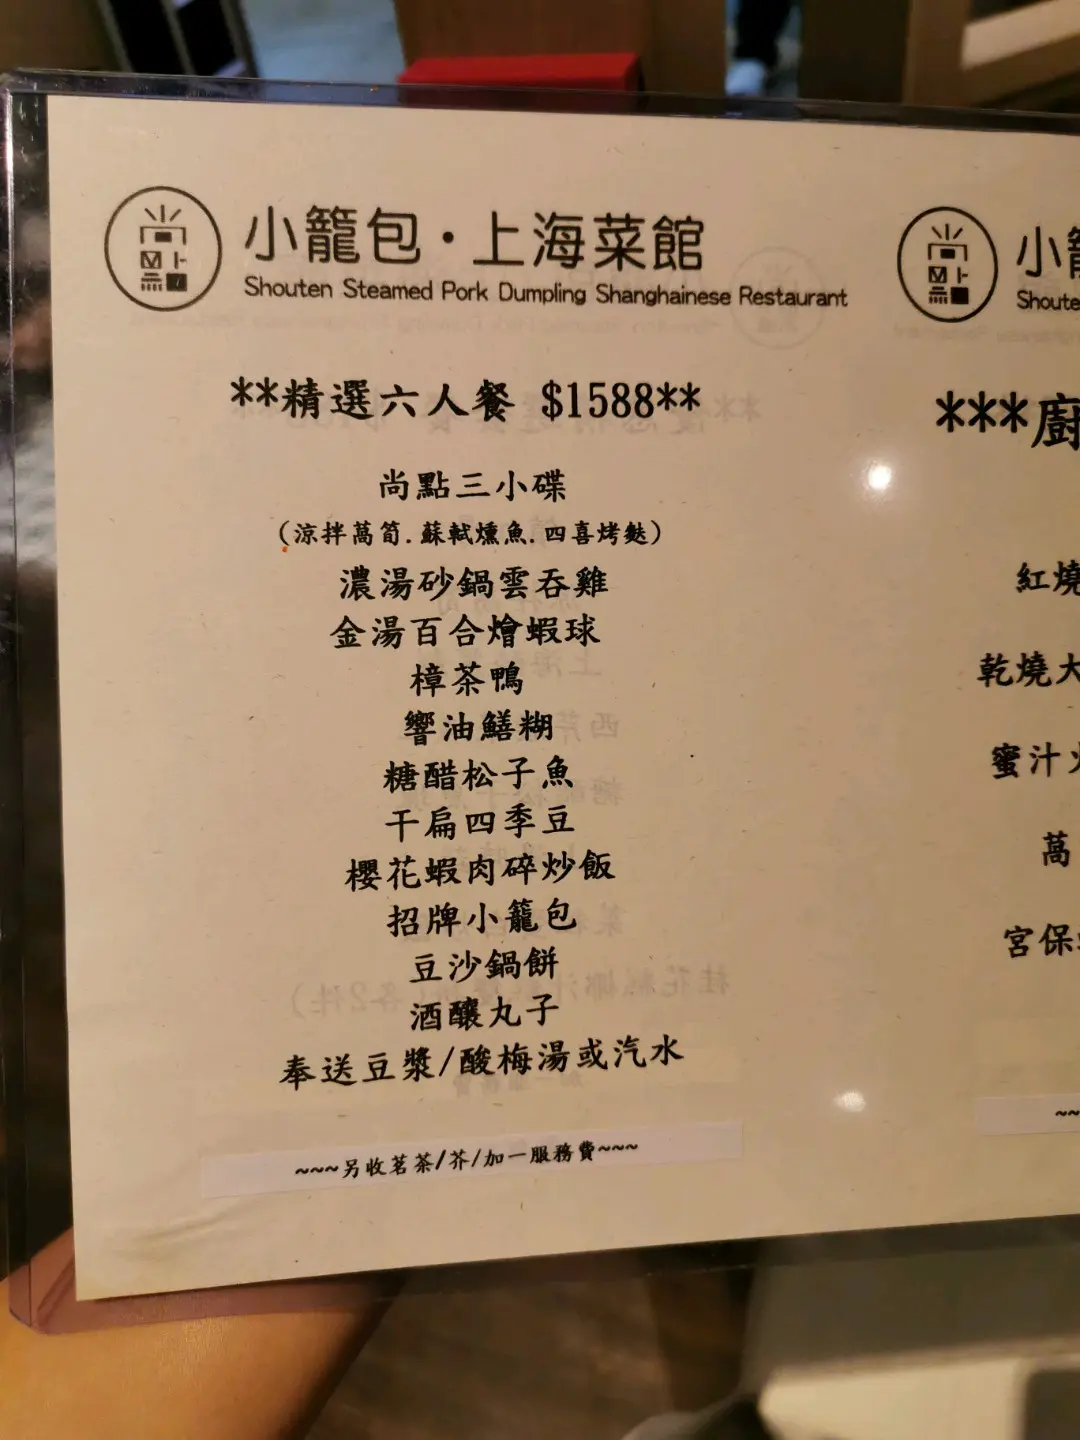 小籠包·上海菜館
Shouten Steamed Pork Dumpling Shanghainese Restaurant
**精選六人餐 $1588**
尚點三小碟
(涼拌萵筍.蘇軾燻魚.四喜烤麩)
濃湯砂鍋雲吞雞
金湯百合燴蝦球
樟茶鴨
響油鱔糊
糖醋松子魚
干扁四季豆
櫻花蝦肉碎炒飯
招牌小籠包
豆沙鍋餅
酒釀丸子
奉送豆漿/酸梅湯或汽水
~~~另收茗茶/芥/加一服務費~~~
小
Shoute
***廚
紅燒
乾燒大
蜜汁火
萬
宮保
~~